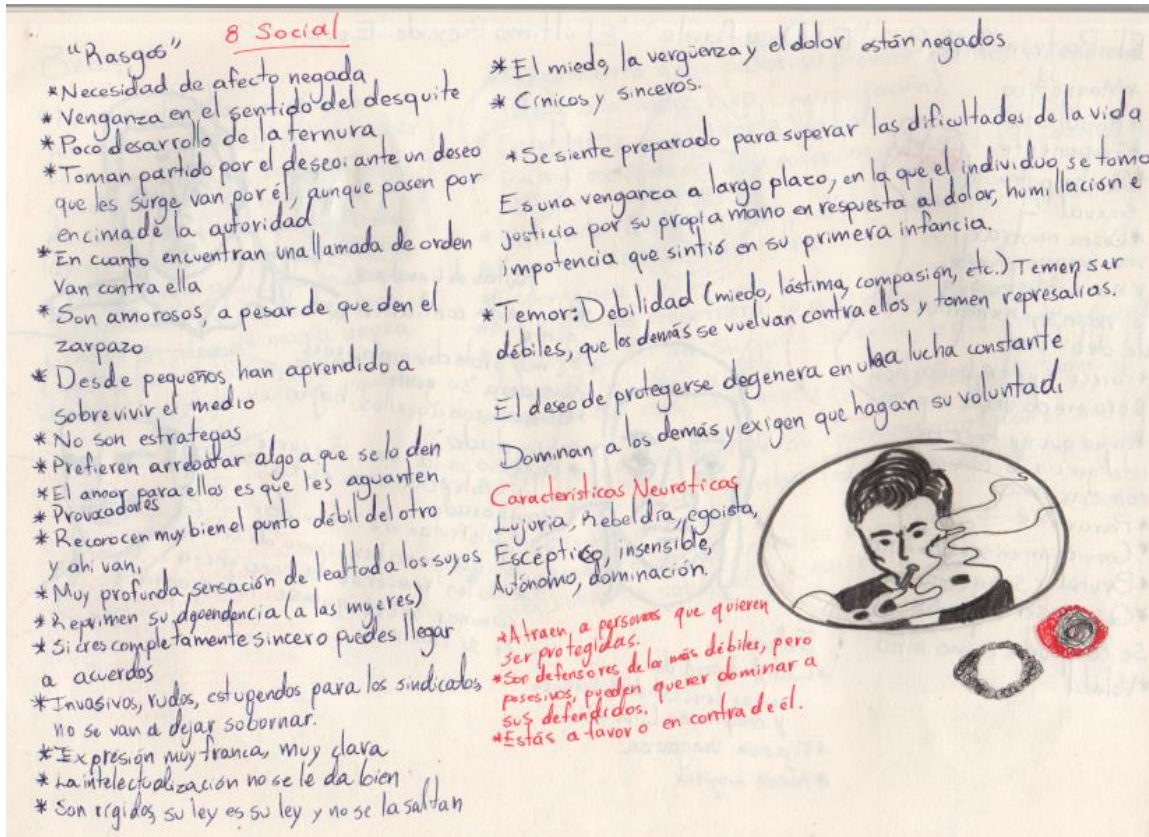 8 Social
"Rasgos"
*Necesidad de afecto negada
*Venganza en el sentido del desquite
*Poco desarrollo de la ternura
*Toman partido por el deseo: ante un deseo
que les surge van por él, aunque pasen por
encima de la autoridad
*En cuanto encuentran una llamada de orden
Van contra ella
*Son amorosos, a pesar de que den el
zarpazo
*Desde pequeños han aprendido a
sobrevivir el medio
*No son estrategas
*Prefieren arrebatar algo a que se lo den
*El amor para ellos es que les aguanten
*Provocadores
*Reconocen muy bien el punto débil del otro
y ahi van,
*Muy profunda, sensación de lealtad a los suyos
*Reprimen su dependencia (a las mujeres)
*Si eres completamente sincero puedes llegar
a acuerdos
*Invasivos, rudos, estupendos para los sindicatos,
no se van a dejar sobornar.
*Expresión muy franca, muy clara
*La intelectualización no se le da bien
*Son rígidos, su ley es su ley y no se la saltan
*El miedo, la vergüenza y el dolor están negados
*Cínicos y sinceros.
*Se siente preparado para superar las dificultades de la vida
Es una venganza a largo plazo, en la que el individuo se toma
justicia por su propia mano en respuesta al dolor, humillación e
impotencia que sintió en su primera infancia.
*Temor: Debilidad (miedo, lástima, compasión, etc.) Temen ser
débiles, que los demás se vuelvan contra ellos y tomen represalias.
El deseo de protegerse degenera en una lucha constante
Dominan a los demás y exigen que hagan su voluntad
Características Neuróticas
Lujuria, Rebeldía, egoista,
Escéptico, insensible,
Autónomo, dominación.
*Atraen a personas que quieren
ser protegidas.
*Son defensores de los más débiles, pero
posesivos, pueden querer dominar a
sus defendidos.
*Estás a favor o en contra de él.